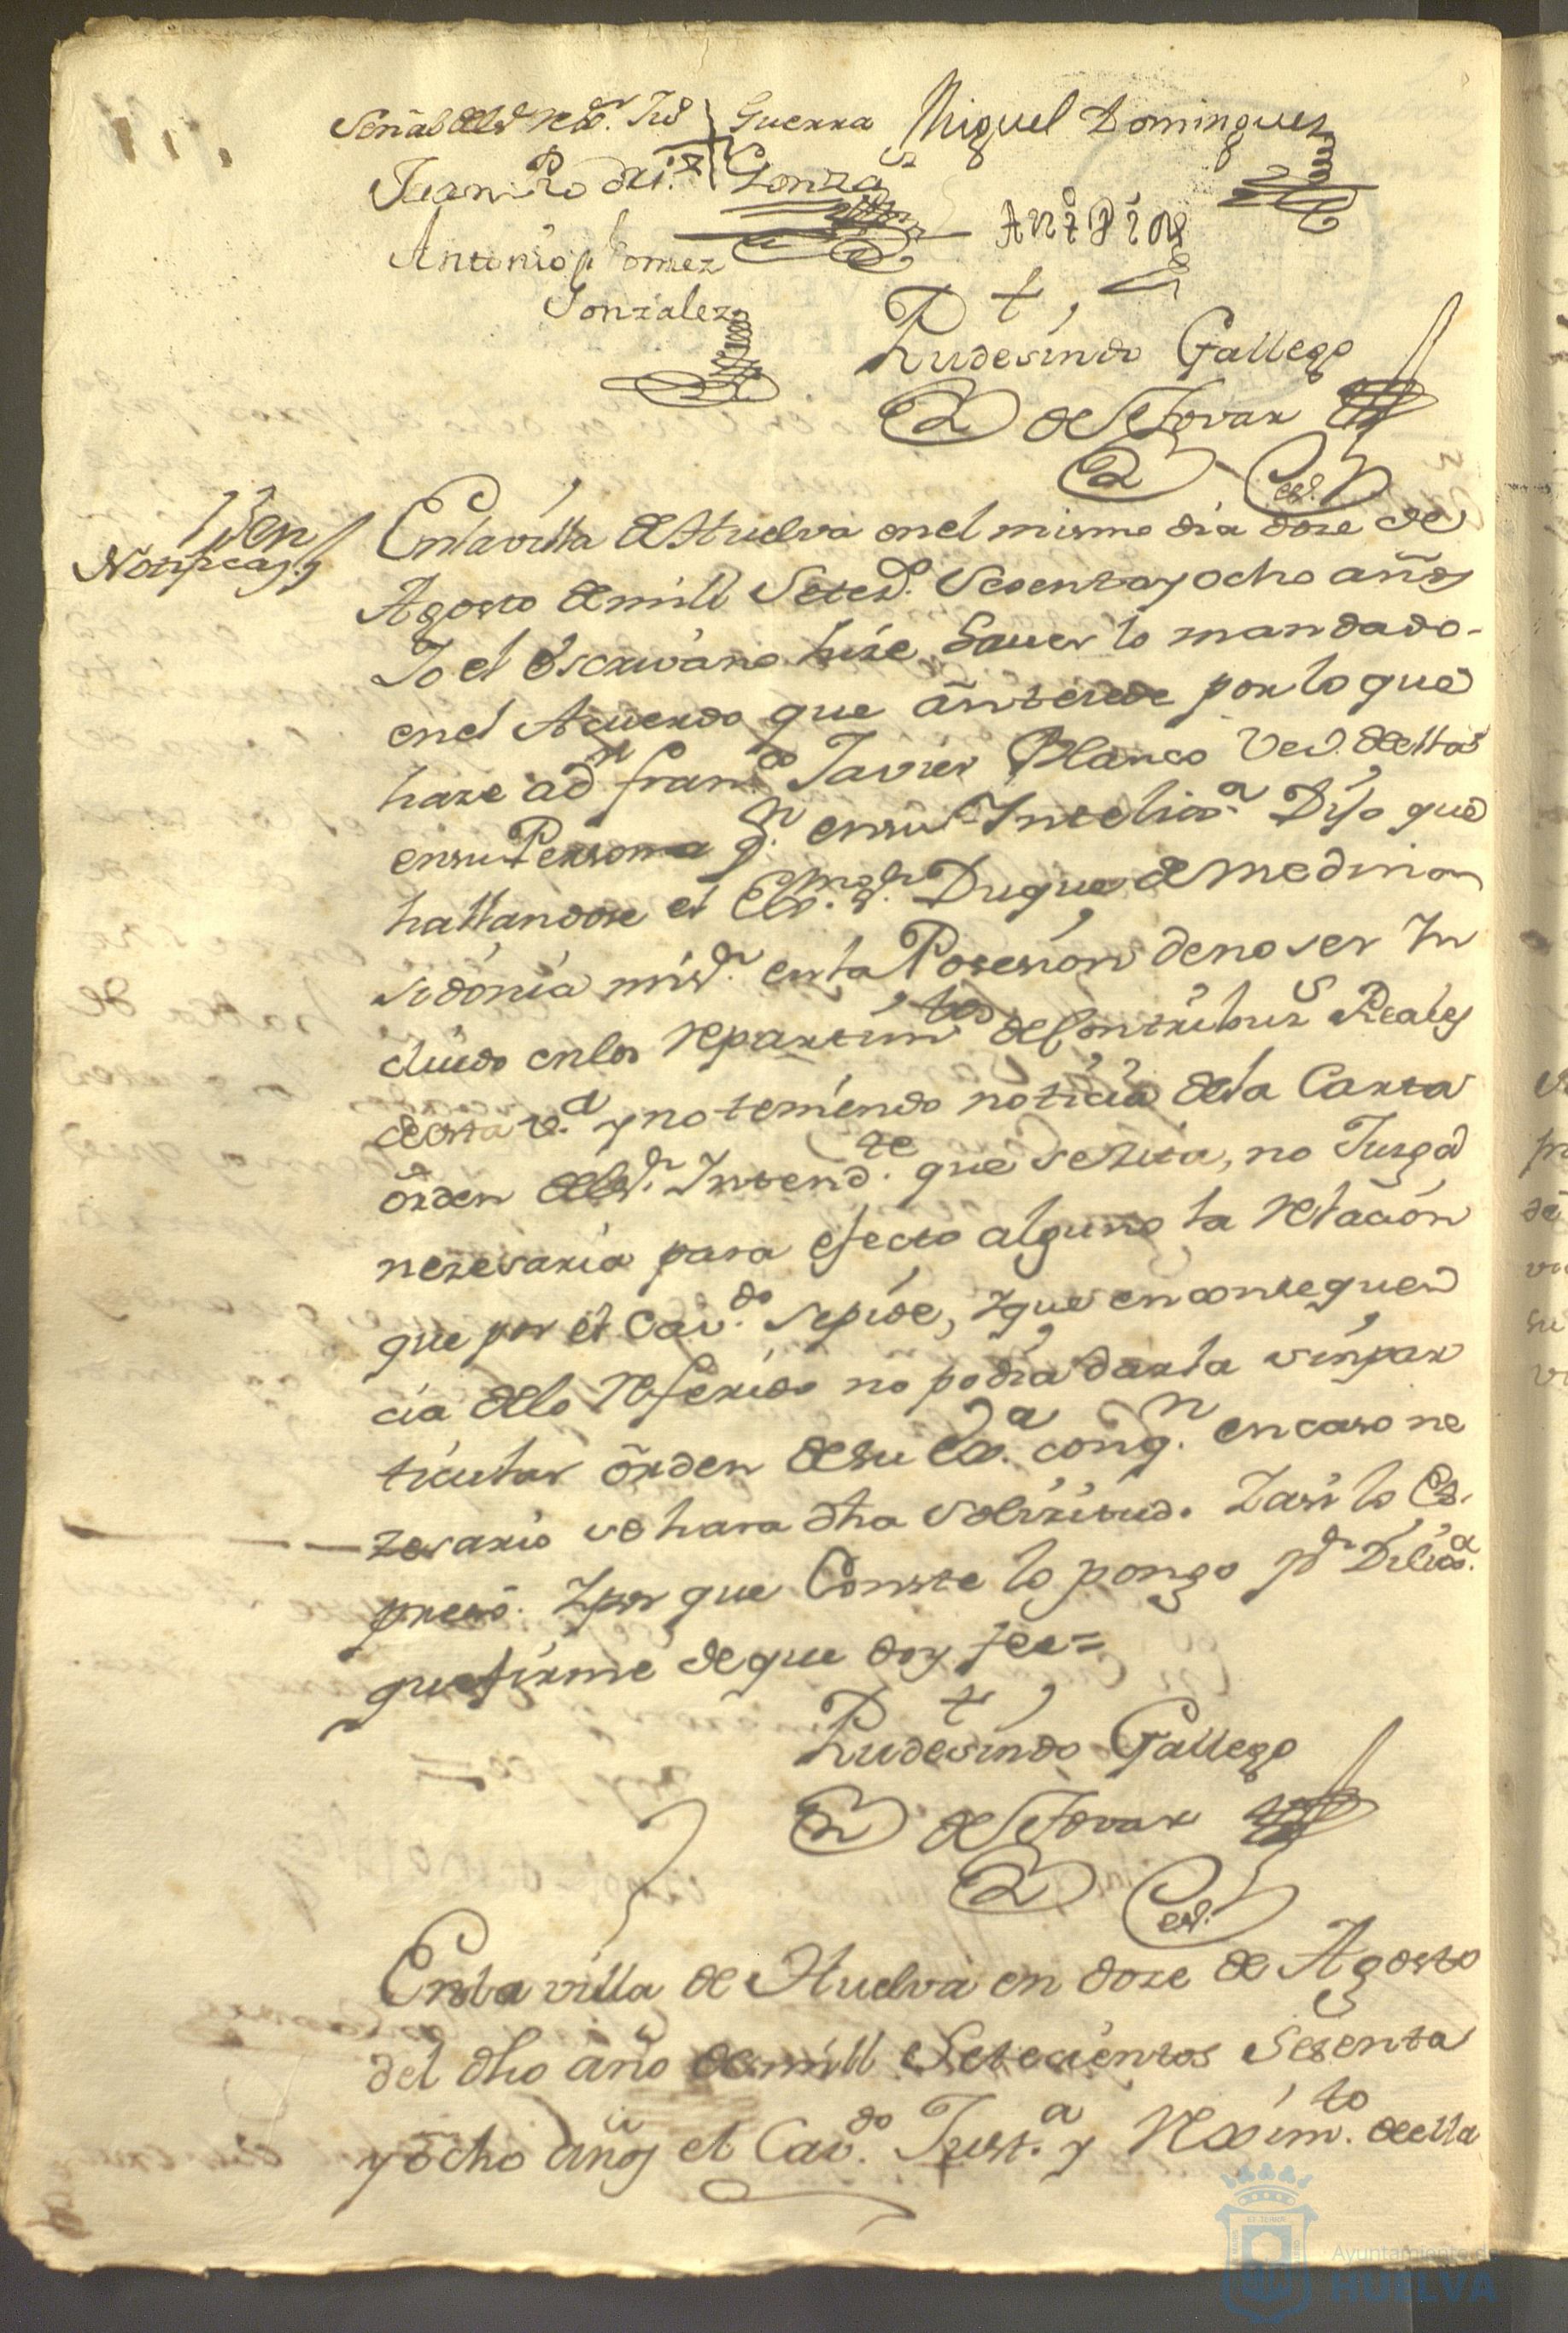 Señal del Sr. Rexr. Jud Guerra Miguel Dominguez
Juan Rodri.z Gonza.z
Antt Diaz
Antonio Gomez
Gonzalez
Rudesindo Gallego
de Tovar
es.
Iden
Notificaz.n
En la villa de Huelva en el mismo dia doze de
Agosto de mill Setez.s Sesenta y ocho años
Yo el escrivano hize Saver lo mandado
en el Acuerdo que antecede por lo que
haze a dn fran.co Javier Blanco Vez. de ella
en su Persona q.n en su Intelixa.a Dijo que
hallandose el Exmo. Sr. Duque de Medina
sidonia mi Sr. en la Posesion de no ser In
cluido en los repartim.tos de Contribuz.s Reales
de esta v.a y no teniendo noticia de la Carta
orden del Sr. Intend.te que se zita, no Juzga
nezesaria para efecto alguno la relacion
que por el Cav.do se pide, y que en consequen
cia de lo referido no podia darla sin par
ticular orden de su Ex.a con q.n en caso ne
zesario se hara dha solizitud. Y asi lo Es
preso. Y por que Conste lo pongo p.r Dilix.a
que firme de que doy fee=
Rudesindo Gallego
de Tovar
es.
En la villa de Huelva en doze de Agosto
del dho año de mill Setecientos Sesenta
y ocho años el Cav.do Just.a y Rexim.to de ella
Ayuntamiento de
HUELVA